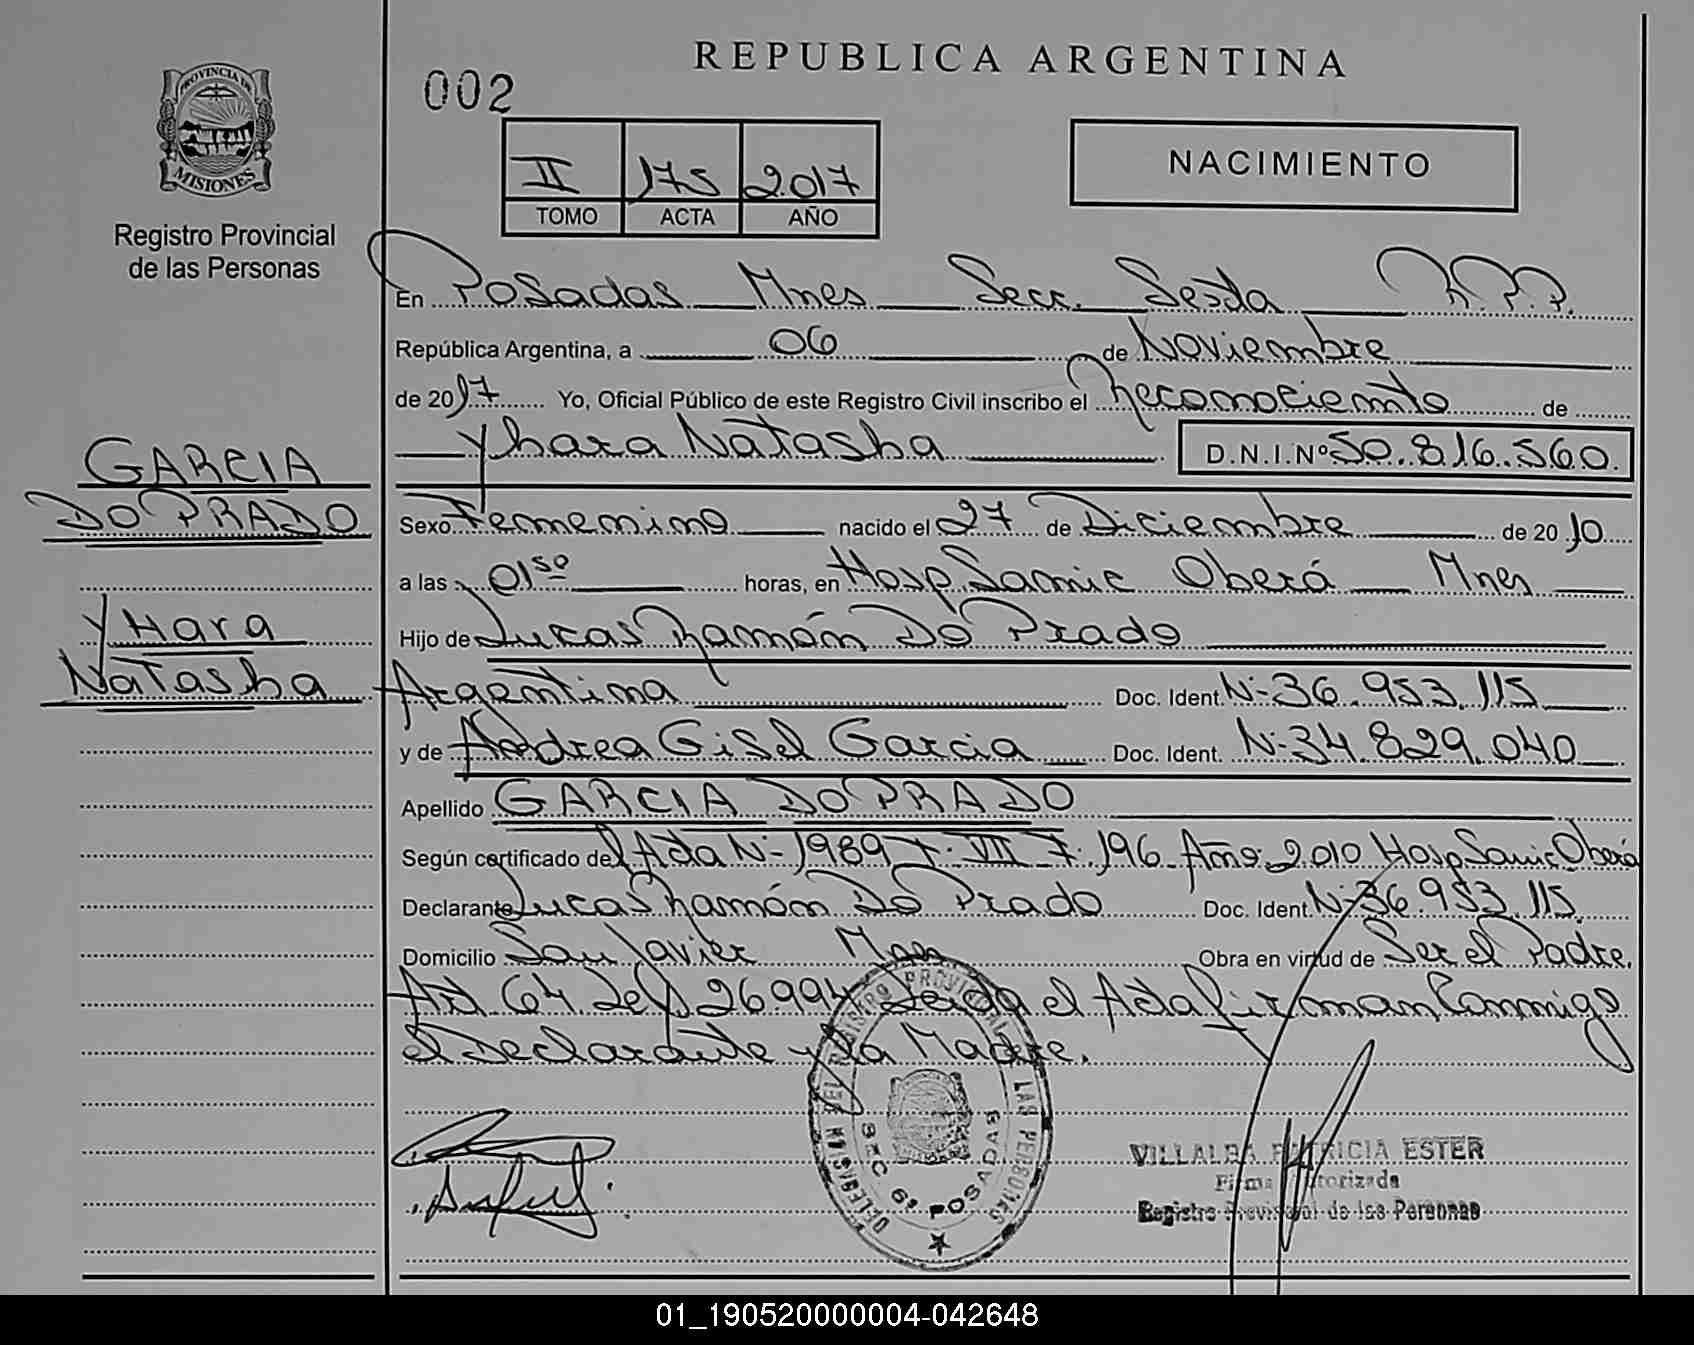 REPUBLICA ARGENTINA
002
PROVINCIA DE
MISIONES
Registro Provincial
de las Personas
II 175 2017
TOMO ACTA AÑO
NACIMIENTO
En Posadas Mnes Secc. Sexta R.P.P.
República Argentina, a 06 de Noviembre
de 2017 Yo, Oficial Público de este Registro Civil inscribo el Reconociemto de
Yhara Natasha D.N.I.Nº 50.816.560.
GARCIA
DO PRADO
Sexo Femenino nacido el 27 de Diciembre de 2010
a las 01⁵⁰ horas, en Hosp. Samic Oberá Mnes
YHara
Hijo de Lucas Ramón Do Prado
Natasha
Argentina Doc. Ident. Nº 36.953.115
y de Andrea Gisel Garcia Doc. Ident. Nº 34.829.040
Apellido GARCIA DO PRADO
Según certificado del Acta Nº 1989 T. VIII F. 196 Año 2010 Hosp Samic Oberá
Declarante Lucas Ramón Do Prado Doc. Ident. Nº 36.953.115
Domicilio San Javier Mnes Obra en virtud de Ser el Padre.
Art. 64 Del 26994 el Acta firman Conmigo
el Declarante y la Madre.
DELEGACION DEL REGISTRO PROVINCIAL DE LAS PERSONAS
SEC 6ª POSADAS
VILLALBA PATRICIA ESTER
Firma Autorizada
Registro Provincial de las Personas
01_190520000004-042648